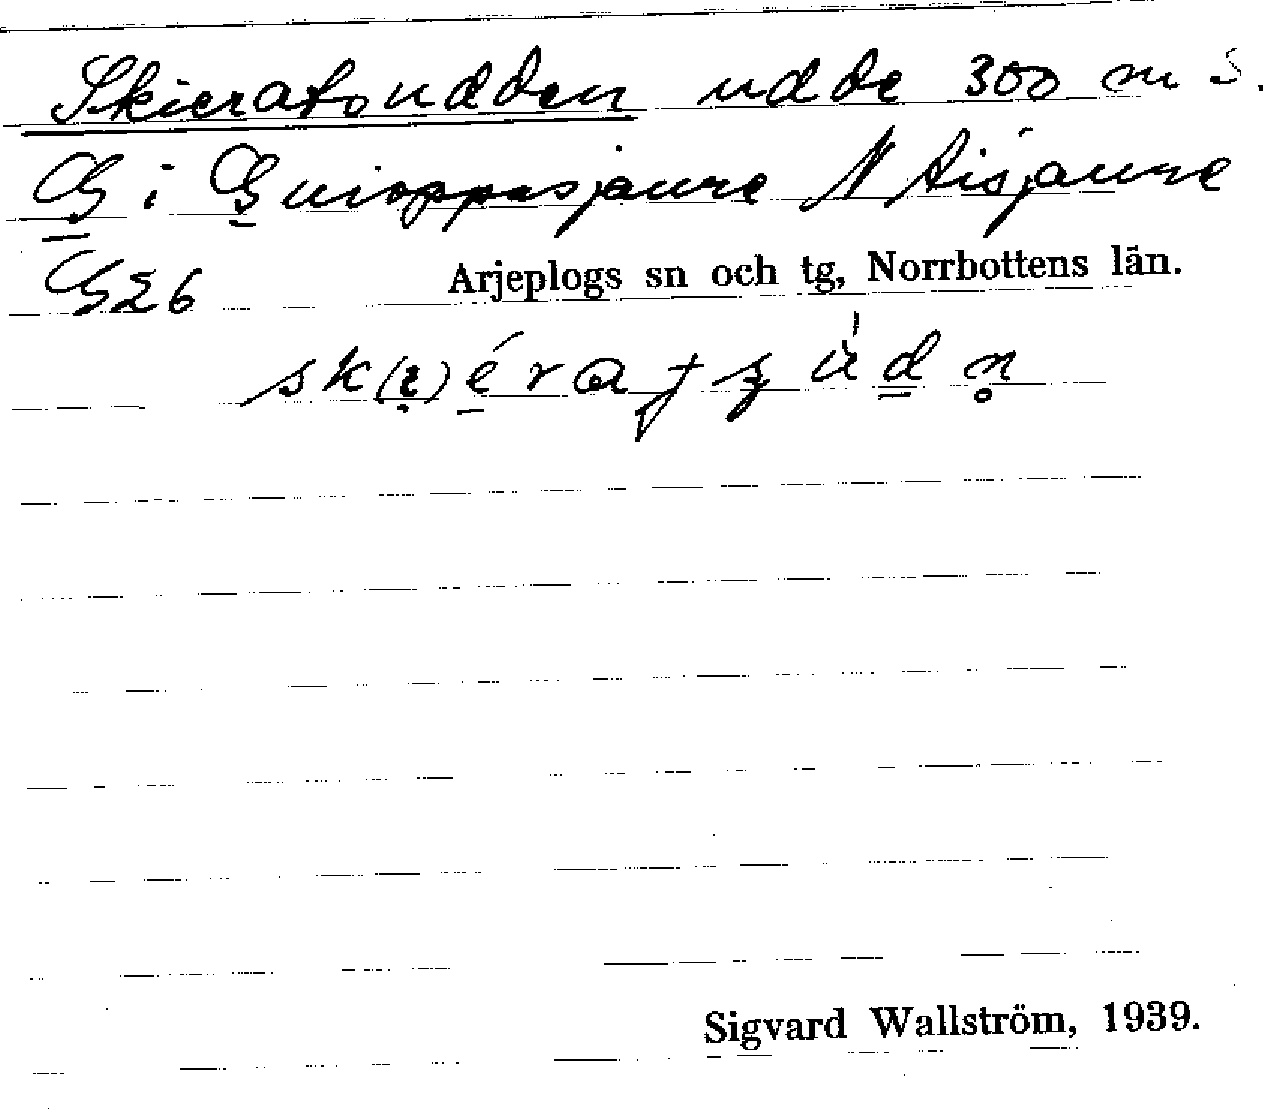 Skieratoudden udde 300 m S.
G i Guioppasjaure N Aisjaure
G26 Arjeplogs sn och tg, Norrbottens län.
Sigvard Wallström, 1939.